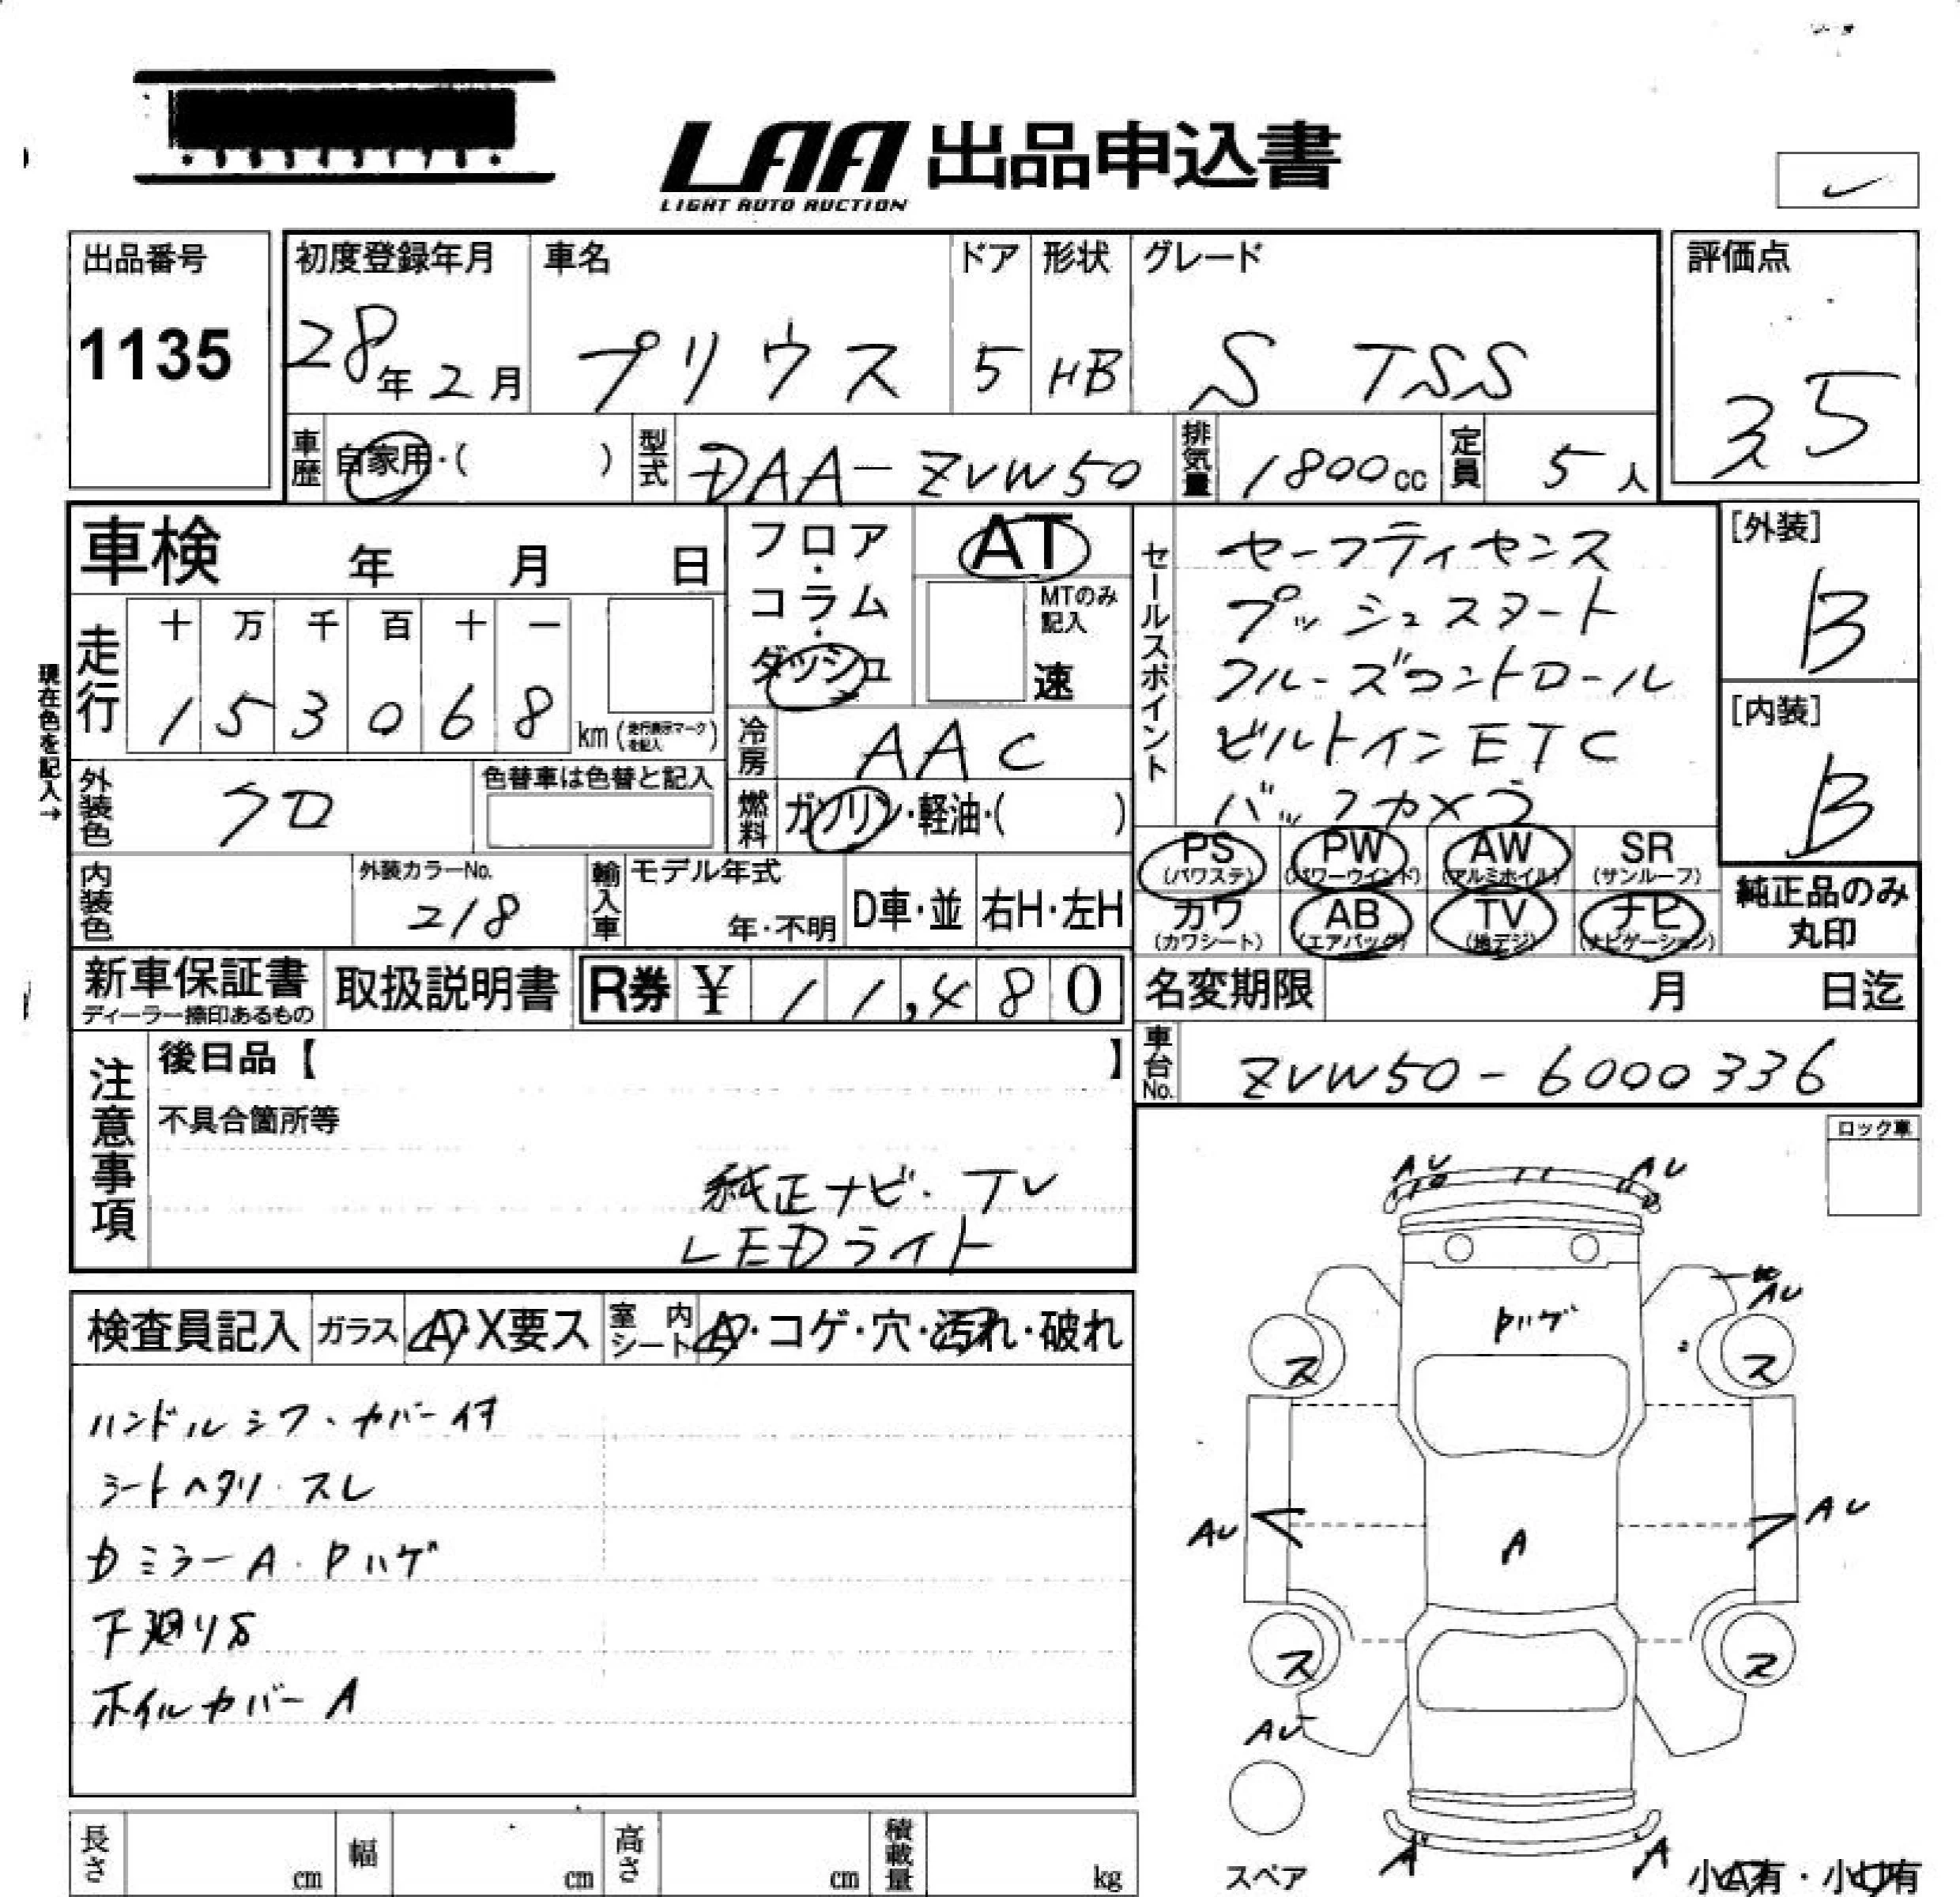 LAA 出品申込書
LIGHT AUTO AUCTION
出品番号
1135
初度登録年月
28年2月
車名
プリウス
ドア
5
形状
HB
グレード
S TSS
評価点
35
車歴
自家用・( )
型式
DAA-ZVW50
排気量
1800cc
定員
5人
車検 年 月 日
走行
十 万 千 百 十 一
1 5 3 0 6 8 km(走行表示マークを記入)
現在色を記入→
外装色
クロ
色替車は色替と記入
フロア・コラム・ダッシュ
AT
MTのみ記入
速
冷房
AAC
燃料
ガソリン・軽油・( )
セールスポイント
セーフティセンス
プッシュスタート
クルーズコントロール
ビルトインETC
バックカメラ
[外装]
B
[内装]
B
PS (パワステ)
PW (パワーウインド)
AW (アルミホイル)
SR (サンルーフ)
カワ (カワシート)
AB (エアバッグ)
TV (地デジ)
ナビ (ナビゲーション)
純正品のみ
丸印
内装色
外装カラーNo.
218
輸入車
モデル年式
年・不明
D車・並
右H・左H
新車保証書
ディーラー捺印あるもの
取扱説明書
R券 ¥ 11,480
名変期限 月 日迄
車台No.
ZVW50-6000336
注意事項
後日品【 】
不具合箇所等
純正ナビ・TV
LEDライト
ロック車
検査員記入
ガラス
A・X要ス
室内シート
A・コゲ・穴・汚れ・破れ
ハンドルシワ・カバー付
シートヘタリ・スレ
Dミラー A・Pハゲ
下廻りS
ホイルカバー A
AU
AU
AU
Pハゲ
ス
ス
AU
AU
A
ス
ス
AU
A
A
スペア
小A有・小U有
長さ cm
幅 cm
高さ cm
積載量 kg